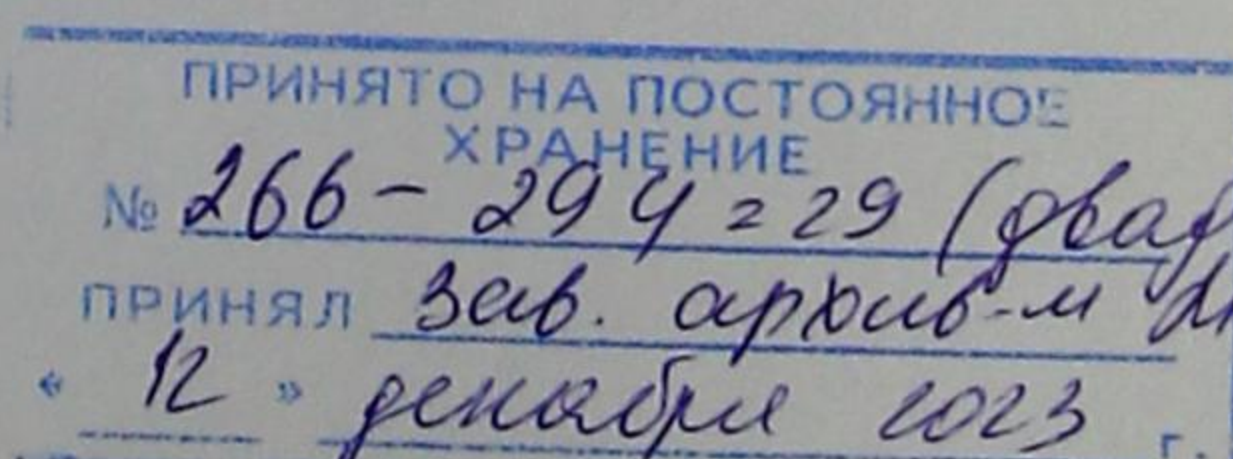 ПРИНЯТО НА ПОСТОЯННОЕ
ХРАНЕНИЕ
№ 266 - 294 = 29 (двад
ПРИНЯЛ Зав. архив-м
« 12 » декабря 2023 г.